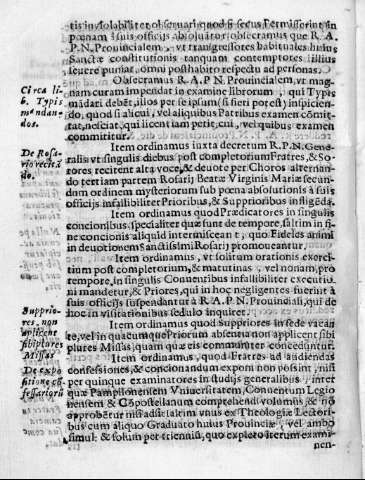 tis inviolabiliter obseruari quod si secus Permisserint in
pœnam à suis officijs absoluātor; obsecramus que R. A.
P. N. Prouincialem, vt transgressores habituales huius
Sanctæ constitutionis tanquam contemptores illius
seuere puniat, omni posthabito respectu ad personas.
Obsecramus R. A. P. N. Prouincialem, vt mag-
Circa li-
b. Typis
mandan-
dos.
nam curam impendat in examine librorum, qui Typis
mādari debēt, illos per se ipsum (si fieri potest) inspicien-
do, quod si alicui, vel aliquibus Patribus examen cōmit-
tat, nesciat, qui licentiam petit, cui, vel quibus examen
committitur.
De Rosa-
rio recitā-
do.
Item ordinamus iuxta decretum R. P. N. Gene-
ralis vt singulis diebus post completorium Fratres, & So-
rores recitent alta voce, & deuote per Choros alternan-
do tertiam partem Rosarij Beatæ Virginis Mariæ secun-
dum ordinem mysteriorum sub pœna absolutionis à suis
officijs infallibiliter Prioribus, & Supprioribus infligēda.
Item ordinamus quod Prædicatores in singulis
concionibus specialiter quæ sunt de tempore, saltim in fi-
ne concionis aliquid intermisceant; quo Fideles animi
in deuotionem sanctissimi Rosarij promoueantur.
Item ordinamus, vt solitum orationis exerci-
tium post completorium, & matutinas, vel nonam, pro
tempore, in singulis Conuentibus infallibiliter executio-
ni mandetur, & Priores, qui in hoc negligentes fuerint à
suis officijs suspendantur à R. A. P. N. Prouinciali, qui de
hoc in visitationibus sedulo inquiret.
Supprio-
res, non
aplicent
sibi plures
Missas
Item ordinamus quod Suppriores in sede vacan-
te, vel in quacunque Priorum absentia non applicent sibi
plures Missas, quam quæ eis communiter conceduntur.
De expo-
sitione cō-
fessariorū
Item ordinamus, quod Fratres ad audiendas
confessiones, & concionandum exponi non possint, nisi
per quinque examinatores in studijs generalibus, inter
quæ Pampilonensem Vniuersitatem, Conuentum Legio-
nensem & Cōpostellanum comprehendi volumus, & nō
approbētur nisi adsit saltim vnus ex Theologiæ Lectori-
bus cum aliquo Graduato huius Prouinciæ, vel ambo
simul: & solum per triennium, quo expleto iterum exami-
nen-